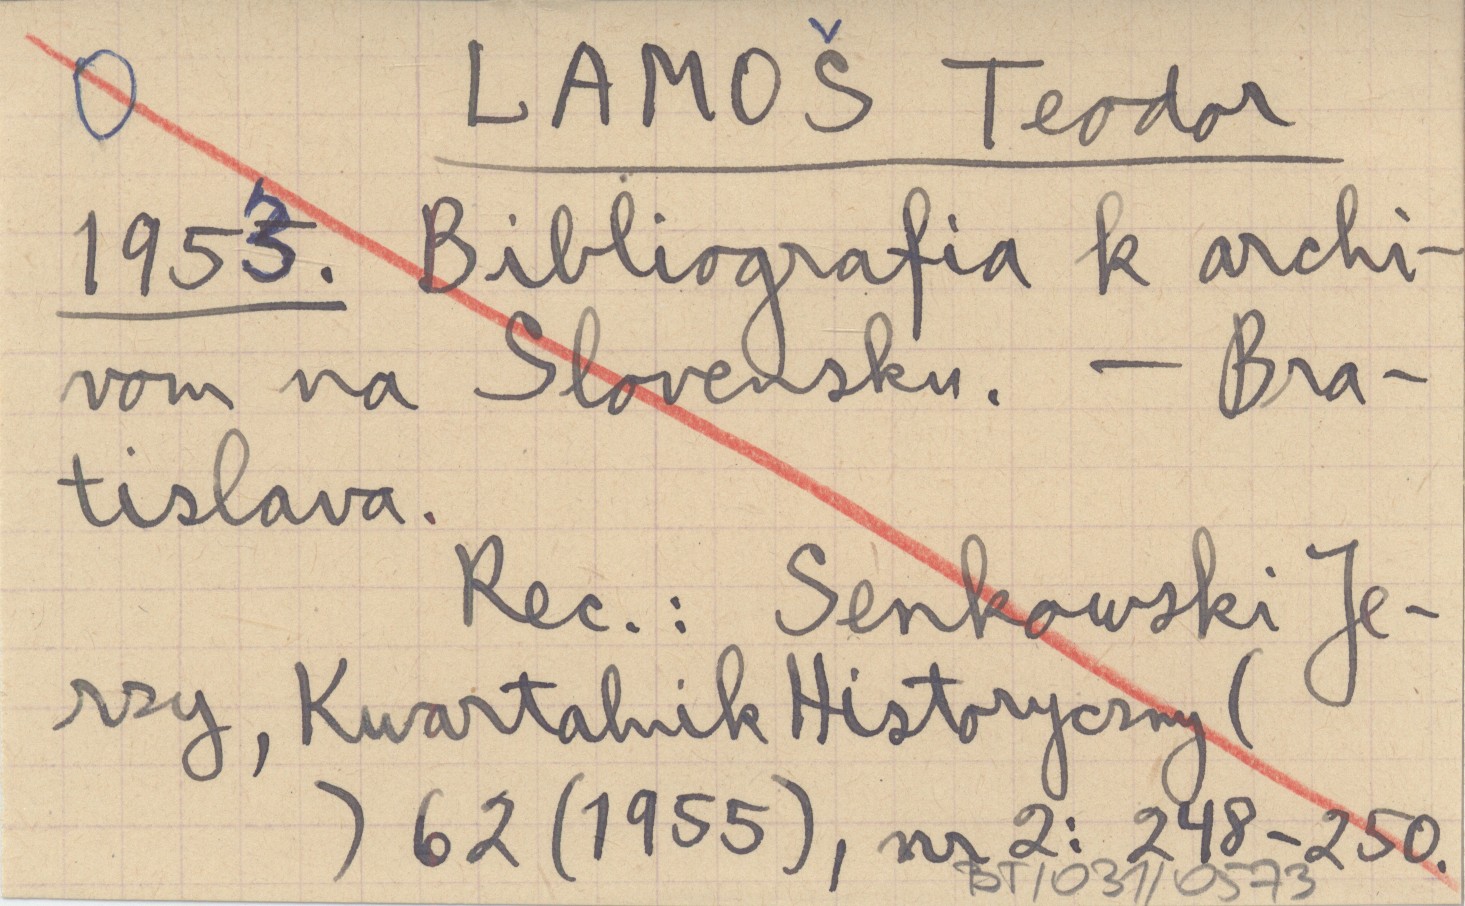 O LAMOŠ Teodor
1953. Bibliografia k archi-
vom na Slovensku. — Bra-
tislava.
Rec.: Senkowski Je-
rzy, Kwartalnik Historyczny (
) 62 (1955), nr 2: 248-250.
BT/031/0573